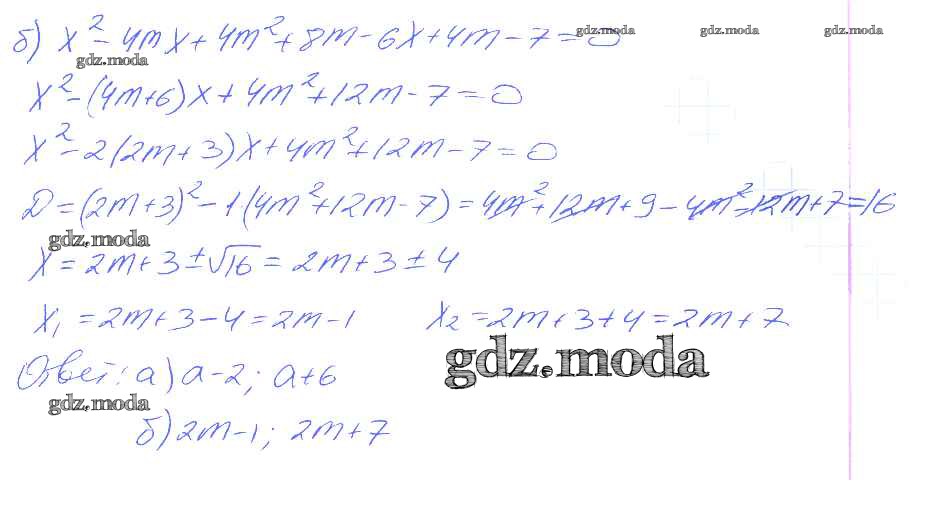 б) x² - 4mx + 4m² + 8m - 6x + 4m - 7 = 0
gdz.moda gdz.moda gdz.moda
gdz.moda
x² - (4m+6)x + 4m² + 12m - 7 = 0
x² - 2(2m+3)x + 4m² + 12m - 7 = 0
D = (2m+3)² - 1(4m² + 12m - 7) = 4m² + 12m + 9 - 4m² - 12m + 7 = 16
gdz.moda
x = 2m + 3 ± √16 = 2m + 3 ± 4
x₁ = 2m + 3 - 4 = 2m - 1 x₂ = 2m + 3 + 4 = 2m + 7
gdz.moda
Ответ: а) a - 2; a + 6
gdz.moda
б) 2m - 1; 2m + 7